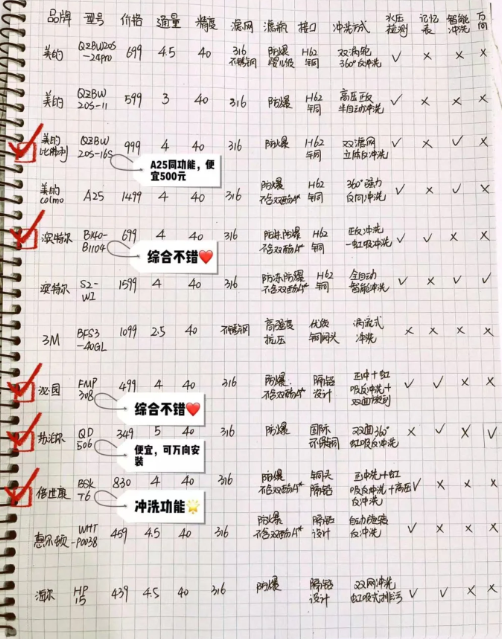 品牌 型号 价格 通量 精度 滤网 滤瓶 接口 冲洗方式 水压检测 记忆表 智能冲洗 万向
美的 QZBW20S-24pro 699 4.5 40 316不锈钢 防爆 H62铜 双涡轮360°反冲洗 ✓ × × ×
美的 QZBW20S-11 599 3 40 316 防爆 H62铜 高压正反半自动冲洗 ✓ × × ×
美的比佛利 QZBW20S-16S 999 4 40 316 防爆 H62铜 双滤网立体反冲洗 ✓ × ✓ ×
A25同功能，便宜500元
美的colmo A25 1499 4 40 316 防爆不含双酚A* H62铜 360°强力反向冲洗 ✓ × ✓ ×
滨特尔 B140-B1104 699 4 40 316 防冻防爆不含双酚A* H62铜 正反冲洗虹吸冲洗 ✓ ✓ × ×
综合不错❤️
滨特尔 S2-W1 1599 4 40 316 防冻防爆不含双酚A* H62铜 全自动智能冲洗 ✓ × ✓ ✓
3M BFS3-40GL 1099 2.5 40 不锈钢 高强度抗压 优质铜阀头 涡流式冲洗 × × × ×
沁园 FMP308 499 4 40 316 防爆不含双酚A* 隔铅设计 正冲+虹吸反冲洗+双面刮刷 ✓ ✓ × ×
综合不错❤️
QD506 349 5 40 316 防爆 国际不锈钢 双面360°虹吸反冲洗 ✓ × × ✓
便宜，可万向安装
倍世 BSK T6 830 4 40 316 防爆不含双酚A* 铜头隔铅 正冲洗+虹吸反冲洗+高压反冲洗 ✓ ✓ × ×
冲洗功能🌟
惠尔顿 WHT-P0038 459 4.5 40 316 防爆不含双酚A* 隔铅设计 自动旋转反冲洗 ✓ × × ×
海尔 HP15 439 4.5 40 316 防爆 隔铅设计 双网冲洗虹吸式排污 ✓ ✓ × ×